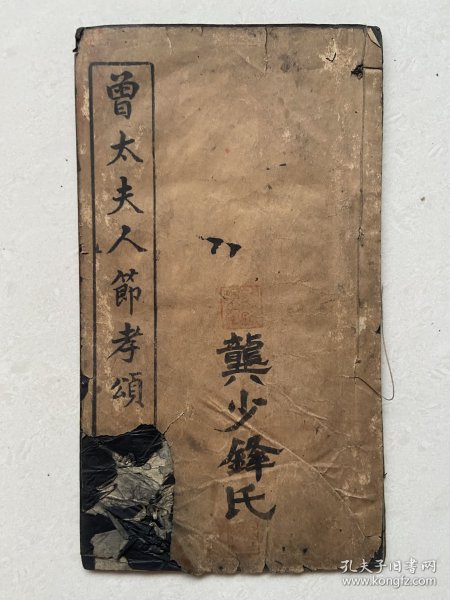 曾太夫人節孝頌
龔少鋒氏
孔夫子旧书网
www.kongfz.com